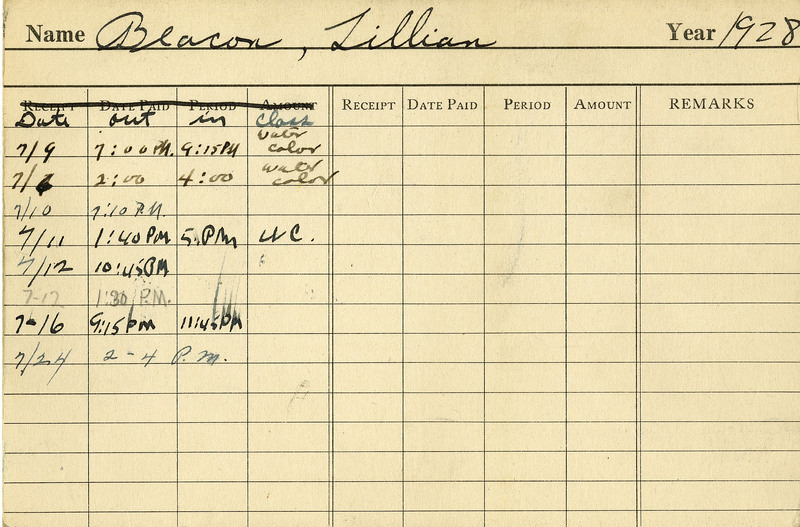 Name Beacon, Lillian Year 1928
RECEIPT DATE PAID PERIOD AMOUNT RECEIPT DATE PAID PERIOD AMOUNT REMARKS
Date out in Class
7/9 7:00 P.M. 9:15 PM water color
2:00 4:00 water color
7/10 7:10 P.M.
7/11 1:40 PM 5 PM W C.
7/12 10:45 PM
7-12 1:30 P.M.
7-16 9:15 pm 11:45 PM
7/24 2-4 P.M.